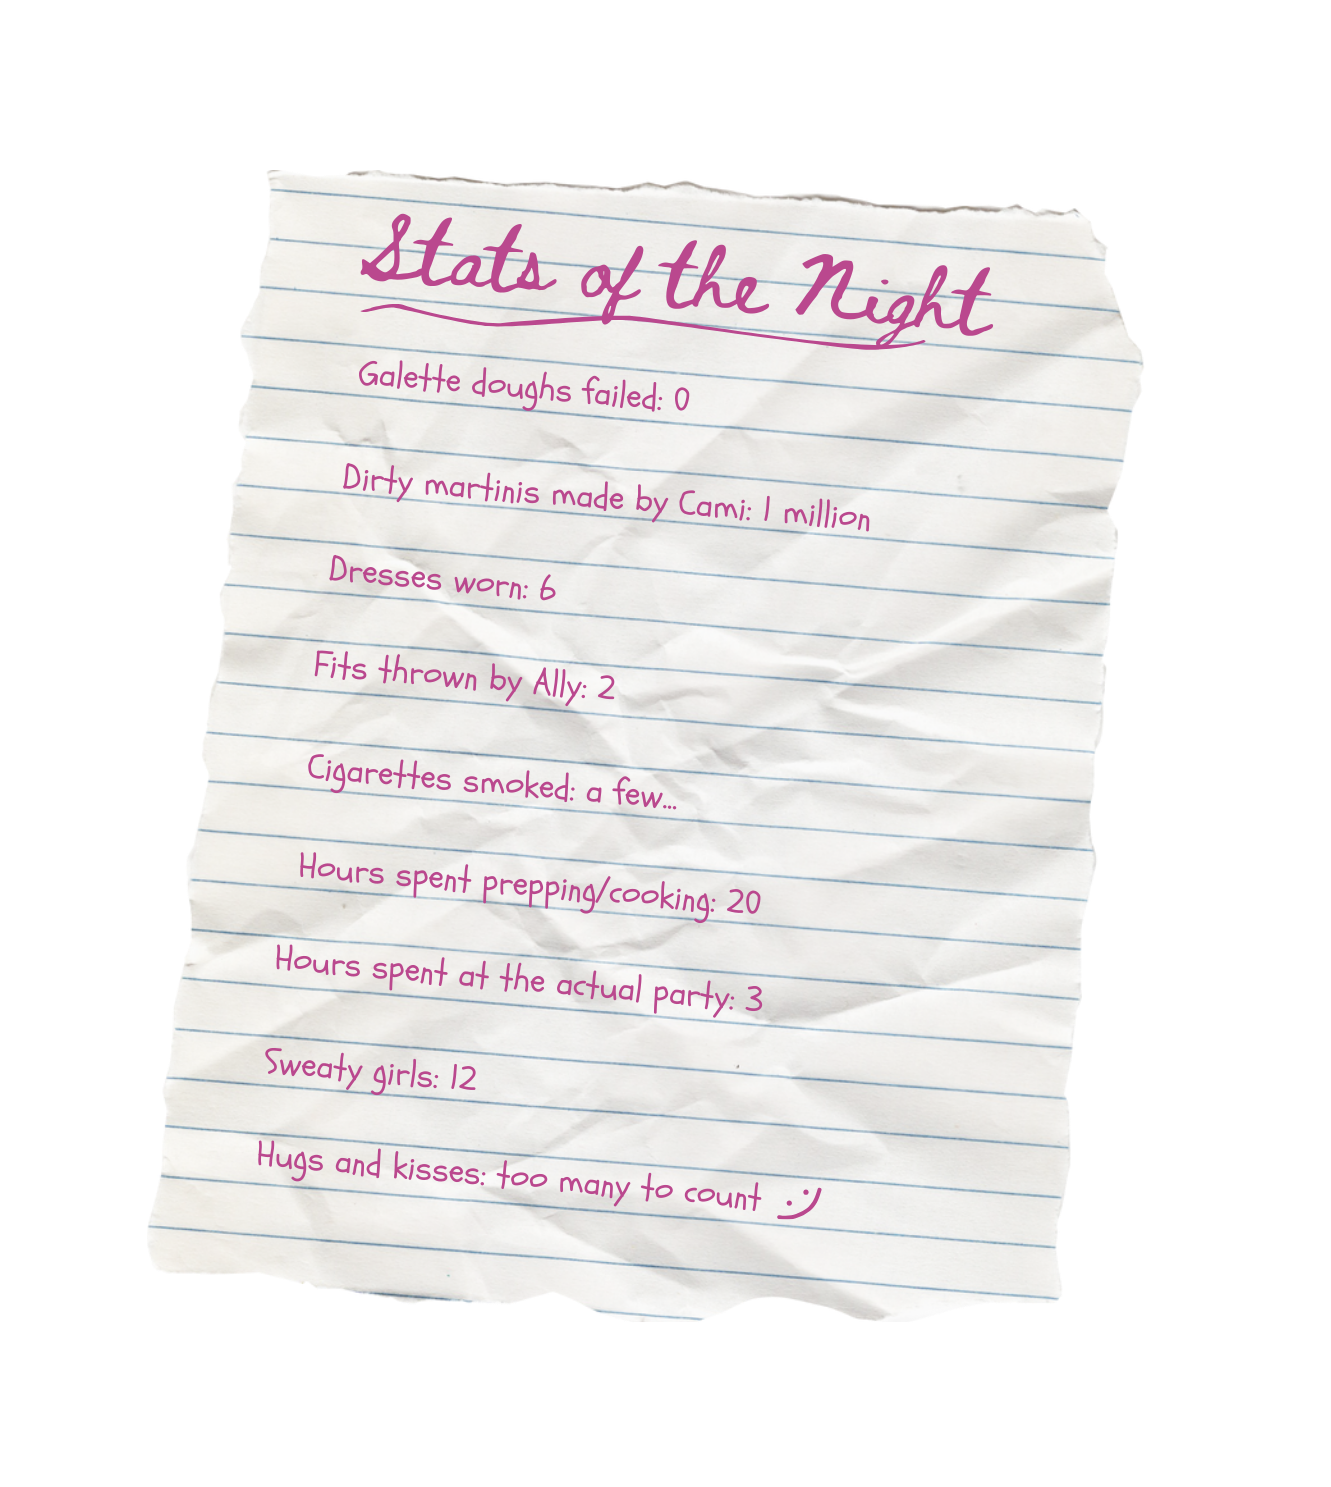 Stats of the Night
Galette doughs failed: 0
Dirty martinis made by Cami: 1 million
Dresses worn: 6
Fits thrown by Ally: 2
Cigarettes smoked: a few...
Hours spent prepping/cooking: 20
Hours spent at the actual party: 3
Sweaty girls: 12
Hugs and kisses: too many to count :)